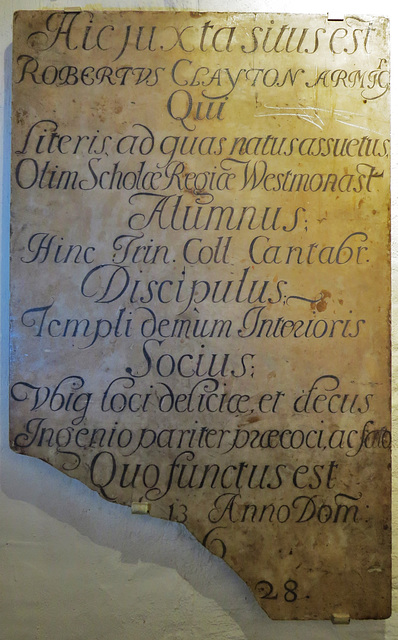 Hic juxta situs est
ROBERTVS CLAYTON ARMIGr
Qui
Literis, ad quas natus assuetus,
Olim Scholæ Regiæ Westmonast
Alumnus;
Hinc Trin. Coll Cantabr.
Discipulus;
Templi demum Interioris
Socius;
Vbiq loci deliciæ, et decus
Ingenio pariter præcoci, ac
Quo functus est
13 Anno Dom
6
28.